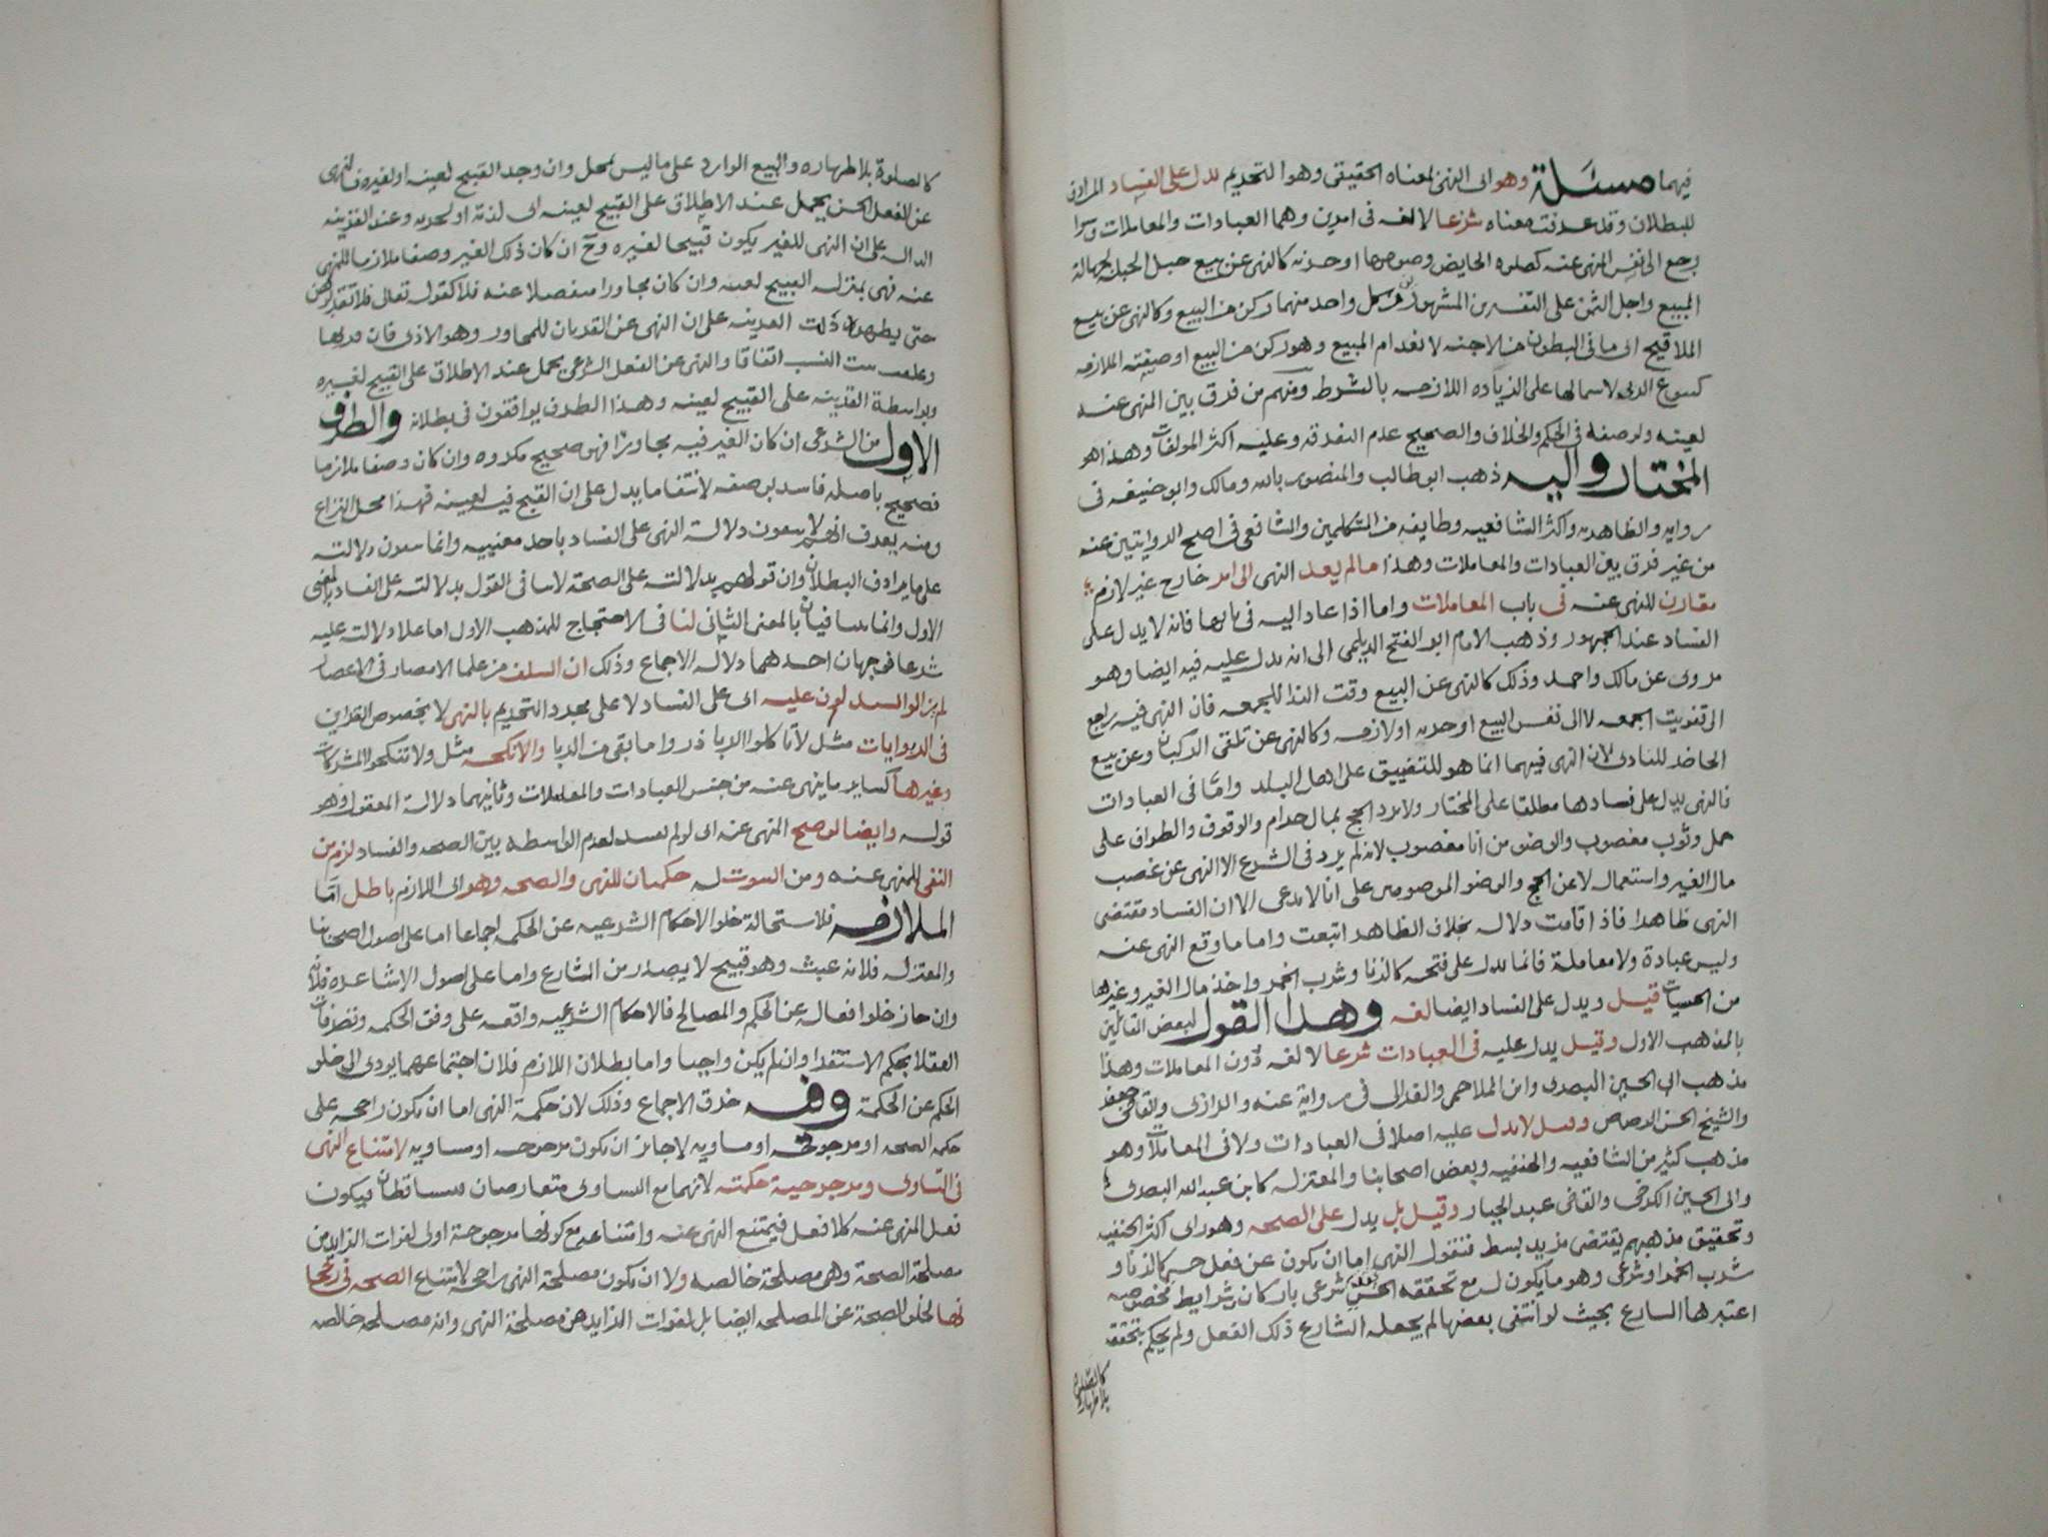 فيهما مسئلة وهو اى النهى لمعناه الحقيقى وهو التحريم يدل على الفساد المرادف
للبطلان وقد عرفت معناه شرعا لا لغه فى امرين وهما العبادات والمعاملات وسوا
رجع الى نفس المنهى عنه كصلوه الحايض وصومها او جزئه كالنهى عن بيع حبل الحبله لجهالة
المبيع واجل الثمن على التفسيرين المشهورين فى كل واحد منهما ركن من البيع وكالنهى عن بيع
الملاقيح اى ما فى البطون من الاجنه لانعدام المبيع وهو ركن من البيع او صفته الملازمه
كبيوع الربى لاشمالها على الزياده اللازمه بالشرط ومنهم من فرق بين المنهى عنه
لعينه ولوصفه فى الحكم والخلاف والصحيح عدم التفرقه وعليه اكثر المولفات وهذا هو
المختار واليه ذهب ابو طالب والمنصور بالله ومالك وابو حنيفه فى
روايه والظاهريه واكثر الشافعيه وطايفه من المتكلمين والشافعى فى اصح الروايتين عنه
من غير فرق بين العبادات والمعاملات وهذا ما لم يعد النهى الى امر خارج غير لازم
مقارن للنهى عنه فى باب المعاملات واما اذا عاد اليه فى بابها فانه لا يدل على
الفساد عند الجمهور وذهب الامام ابو الفتح الديلمى الى انه يدل عليه فيه ايضا وهو
مروى عن مالك واحمد وذلك كالنهى عن البيع وقت الندا للجمعه فان النهى فيه راجع
الى تفويت الجمعه لا الى نفس البيع او جزئه او لازمه وكالنهى عن تلقى الركبان وعن بيع
الحاضر للبادى لان النهى فيهما انما هو للتضييق على اهل البلد واما فى العبادات
فالنهى يدل على فسادها مطلقا على المختار ولا يرد الحج بمال حرام والوقوف والطواف على
جمل وثوب مغصوب والوضو من انا مغصوب لانه لم يرد فى الشرع الا النهى عن غصب
مال الغير واستعماله لا عن الحج والوضو الموصوفين على انا لا ندعى الا ان الفساد مقتضى
النهى ظاهرا فاذا قامت دلاله بخلاف الظاهر اتبعت واما ما وقع النهى عنه
وليس عبادة ولا معاملة فانما يدل على قبحه كالزنا وشرب الخمر واخذ مال الغير وغيرها
من الحسيات قيل ويدل على الفساد ايضا لغه وهذا القول لبعض القائلين
بالمذهب الاول وقيل يدل عليه فى العبادات شرعا لا لغه دون المعاملات وهذا
مذهب ابى الحسين البصرى وابن الملاحمى والغزالى فى رواية عنه والرازى والقاضى جعفر
والشيخ الحسن الرصاص وقيل لا يدل عليه اصلا فى العبادات ولا فى المعاملات وهو
مذهب كثير من الشافعيه والحنفيه وبعض اصحابنا والمعتزله كابن عبد الله البصرى
وابى الحسين الكرخى والقاضى عبد الجبار وقيل بل يدل على الصحه وهو راى اكثر الحنفيه
وتحقيق مذهبهم يقتضى مزيد بسط فنقول النهى اما ان يكون عن فعل حسى كالزنا و
شرب الخمر او شرعى وهو ما يكون له مع تحققه الحسى تحقق شرعى باركان وشرايط مخصوصه
اعتبرها الشارع بحيث لو انتفى بعضها لم يجعله الشارع ذلك الفعل ولم يحكم بتحققه
كالصلوة
بلا طهاره
كالصلوة بلا طهاره والبيع الوارد على ما ليس بمحل وان وجد القبيح لعينه او لغيره فالنهى
عن الفعل الحسى يحمل عند الاطلاق على القبيح لعينه اى لذاته او لجزئه وعند القرينه
الداله على ان النهى للغير يكون قبيحا لغيره وح ان كان ذلك الغير وصفا ملازما للمنهى
عنه فهى بمنزله القبيح لعينه وان كان مجاورا منفصلا عنه فلا كقوله تعالى فلا تقربوهن
حتى يطهرن دلت القرينه على ان النهى عن القربان للمجاور وهو الاذى فان قربها
النسب اتفاقا والنهى عن الفعل الشرعى يحمل عند الاطلاق على القبيح لغيره
وبواسطة القرينه على القبيح لعينه وهذا الطرف يوافقون فى بطلانه والطرف
الاول من الشرعى ان كان الغير فيه مجاورا فهو صحيح مكروه وان كان وصفا ملازما
فصحيح باصله فاسد بوصفه لانتفا ما يدل على ان القبح فيه لعينه فهذا محل النزاع
ومنه يعرف انهم لا يمنعون دلالة النهى على الفساد باحد معنييه وانما يمنعون دلالته
على ما يرادف البطلان وان قولهم بدلالته على الصحة لا ينافى القول بدلالته على الفساد بالمعنى
الاول وانما يتنافيان بالمعنى الثانى لنا فى الاحتجاج للمذهب الاول اما على دلالته عليه
شرعا فوجهان احدهما دلاله الاجماع وذلك ان السلف من علما الامصار فى الاعصار
لم يزالوا يستدلون عليه اى على الفساد لا على مجرد التحريم بالنهى لا بخصوص القراين
فى الربوايات مثل لا تاكلوا الربا ذروا ما بقى من الربا والانكحه مثل ولا تنكحوا المشركات
وغيرها كساير ما ينهى عنه من جنس العبادات والمعاملات وثانيهما دلالة المعقول وهو
قوله وايضا لو صح المنهى عنه اى لو لم يفسد لعدم الواسطه بين الصحه والفساد لزم من
النفى للمنهى عنه ومن الثبوت له حكمتان للنهى والصحه وهو اى اللازم باطل اما
الملازمه فلاستحالة خلو الاحكام الشرعيه عن الحكمه اجماعا اما على اصول اصحابنا
والمعتزله فلانه عبث وهو قبيح لا يصدر من الشارع واما على اصول الاشاعره فلانه
وان جاز خلو افعاله عن الحكم والمصالح فالاحكام الشرعيه واقعه على وفق الحكمه وتصرفات
العقلا بحكم الاستقرا وان لم يكن واجبا واما بطلان اللازم فلان اجتماعهما يودى الى خلو
الحكم عن الحكمة وفيه خرق الاجماع وذلك لان حكمة النهى اما ان يكون راجحه على
حكمه الصحه او مرجوحة او مساويه لا جايز ان يكون مرجوحه او مساويه لامتناع النهى
فى التساوى ومرجوحية حكمته لانهما مع التساوى متعارضان يتساقطان فيكون
فعل المنهى عنه كلا فعل فيمتنع النهى عنه وامتناعه مع كونها مرجوحة اولى لفوات الزايد من
مصلحة الصحة وهى مصلحة خالصه ولا ان يكون مصلحة النهى راجحه لامتناع الصحه فى رجحا
نها لخلو الصحة عن المصلحه ايضا بل لفوات الزايد من مصلحة النهى وانه مصلحه خالصه